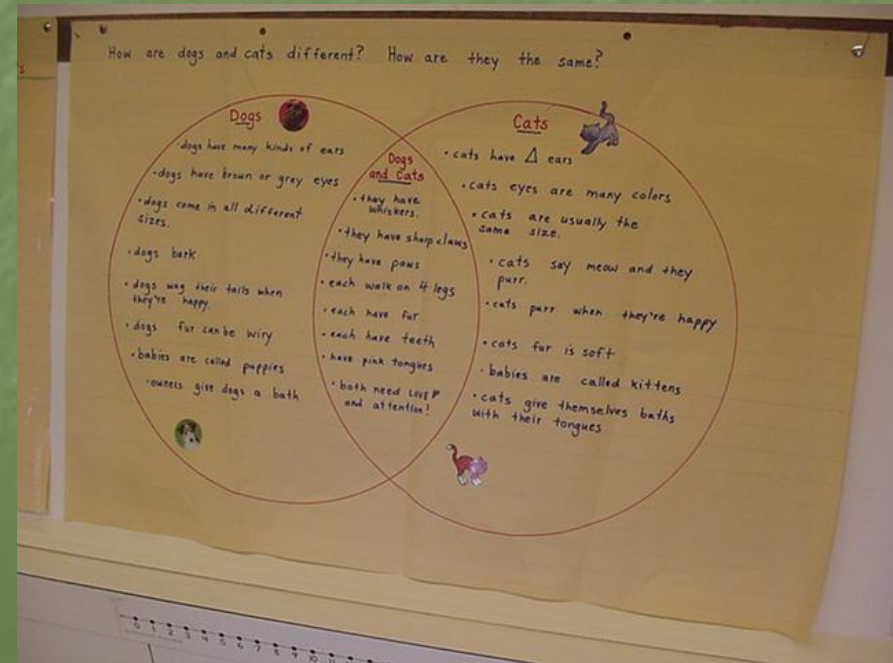 How are dogs and cats different? How are they the same?
Dogs
• dogs have many kinds of ears
• dogs have brown or grey eyes
• dogs come in all different
sizes.
• dogs bark
• dogs wag their tails when
they're happy.
• dogs fur can be wiry
• babies are called puppies
• owners give dogs a bath
Dogs
and Cats
• they have
whiskers.
• they have sharp claws
• they have paws
• each walk on 4 legs
• each have fur
• each have teeth
• have pink tongues
• both need LOVE
and attention!
Cats
• cats have △ ears
• cats eyes are many colors
• cats are usually the
same size.
• cats say meow and they
purr.
• cats purr when they're happy
• cats fur is soft
• babies are called kittens
• cats give themselves baths
with their tongues
0 1 2 3 4 5 6 7 8 9 10 11